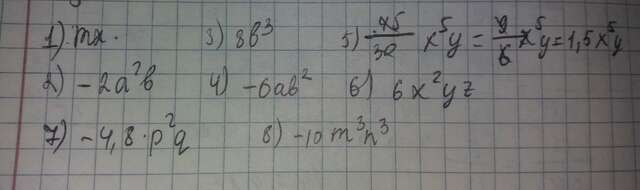 1) mx. 3) 8b³ 5) 45/30 x⁵y = 9/6 x⁵y = 1,5x⁵y
2) -2a²b 4) -6ab² 6) 6x²yz
7) -4,8·p²q 8) -10m³n³